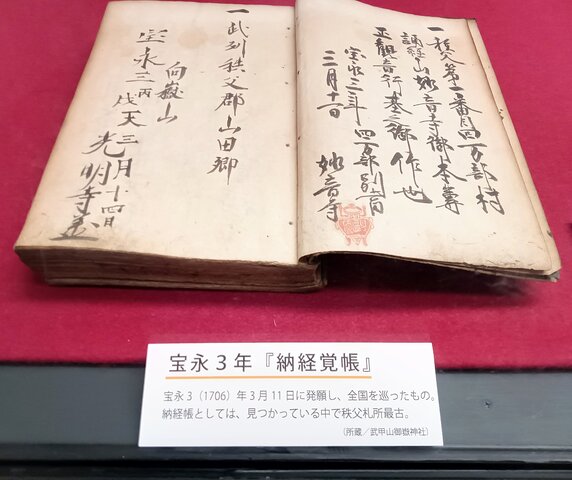 一秩父第一番目四万部村
誦経山妙音寺御本尊
正観音行基之御作也
宝永三年 四万部別当
三月十一日 妙音寺
一武州秩父郡山田郷
向嶽山
宝永三丙戌天三月十四日
光明寺
宝永3年『納経覚帳』
宝永3(1706)年3月11日に発願し、全国を巡ったもの。
納経帳としては、見つかっている中で秩父札所最古。
(所蔵/武甲山御嶽神社)